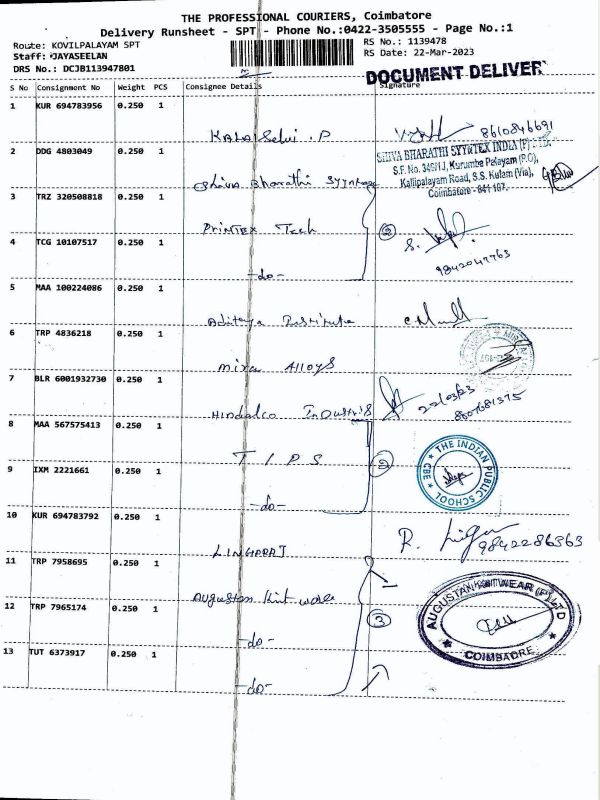 THE PROFESSIONAL COURIERS, Coimbatore
Delivery Runsheet - SPT - Phone No.:0422-3505555 - Page No.:1
Route: KOVILPALAYAM SPT
RS No.: 1139478
Staff: JAYASEELAN
RS Date: 22-Mar-2023
DRS No.: DCJB113947801
DOCUMENT DELIVER
S No Consignment No Weight PCS Consignee Details Signature
1 KUR 694783956 0.250 1
Kala Selvi . P 8610846691
2 DDG 4803049 0.250 1
SHIVA BHARATHI SYNTEX INDIA (P) LTD.
S.F. No. 346/1J, Kurumba Palayam (P.O),
Kallipalayam Road, S.S. Kulam (Via),
Coimbatore - 641 107.
Shiva Bharathi
3 TRZ 320508818 0.250 1
Printex Tech
4 TCG 10107517 0.250 1
-do-
5 MAA 100224086 0.250 1
Aditya
6 TRP 4836218 0.250 1
Alloys
7 BLR 6001932730 0.250 1
Hindalco Industris 22/03/23
8807681375
8 MAA 567575413 0.250 1
T I P S
THE INDIAN PUBLIC SCHOOL CBE
9 IXM 2221661 0.250 1
-do-
10 KUR 694783792 0.250 1
LINGARAJ 9842286363
11 TRP 7958695 0.250 1
Augustan Knit ware
AUGUSTAN KNITWEAR (P) LTD
COIMBATORE
12 TRP 7965174 0.250 1
3
-do-
13 TUT 6373917 0.250 1
-do-